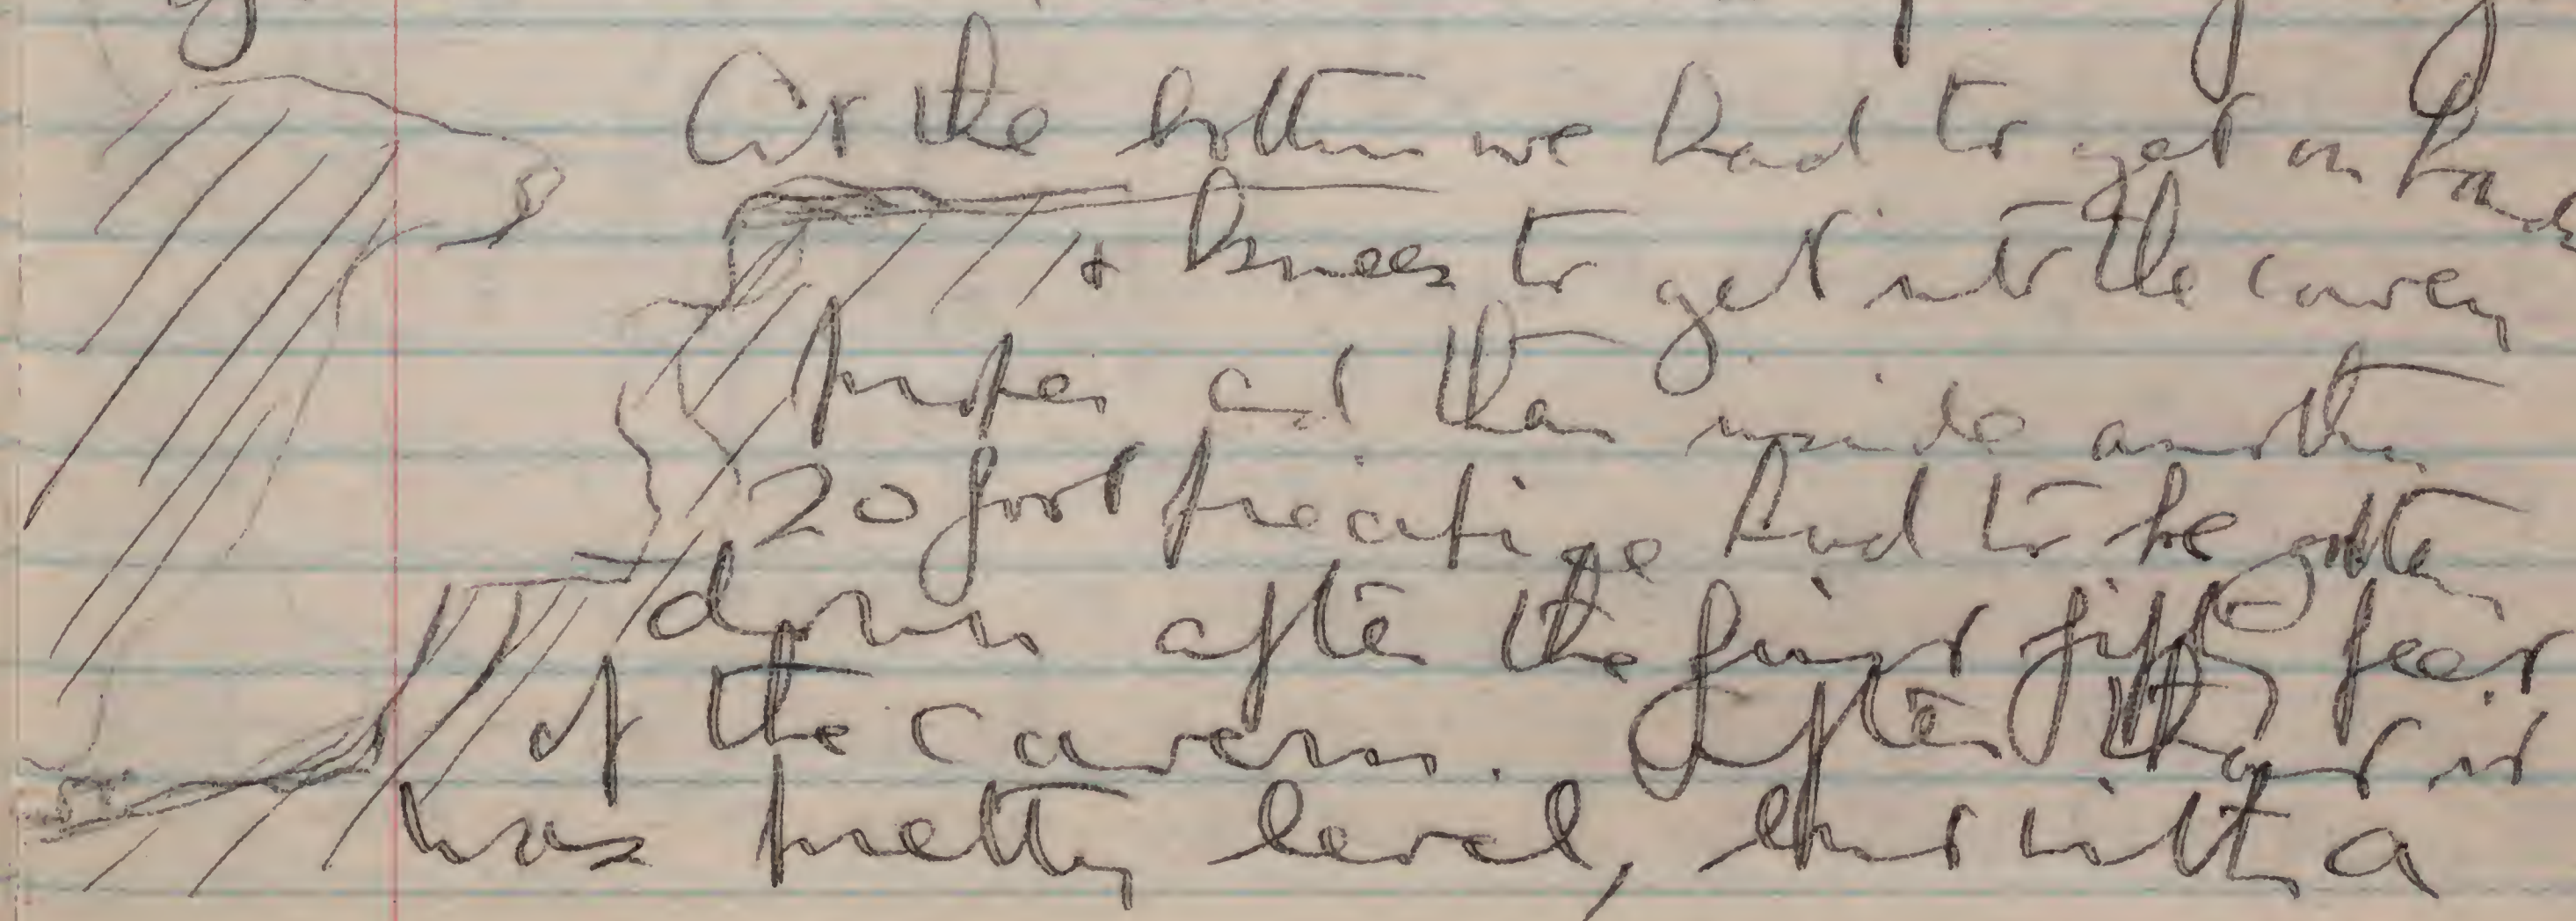 At the bottom we had to get on hands
+ knees to get into the cavern
proper and then inside another
20 foot precipice had to be gotten
down after the first fifty feet
of the cavern. After that it
was pretty level, but with a